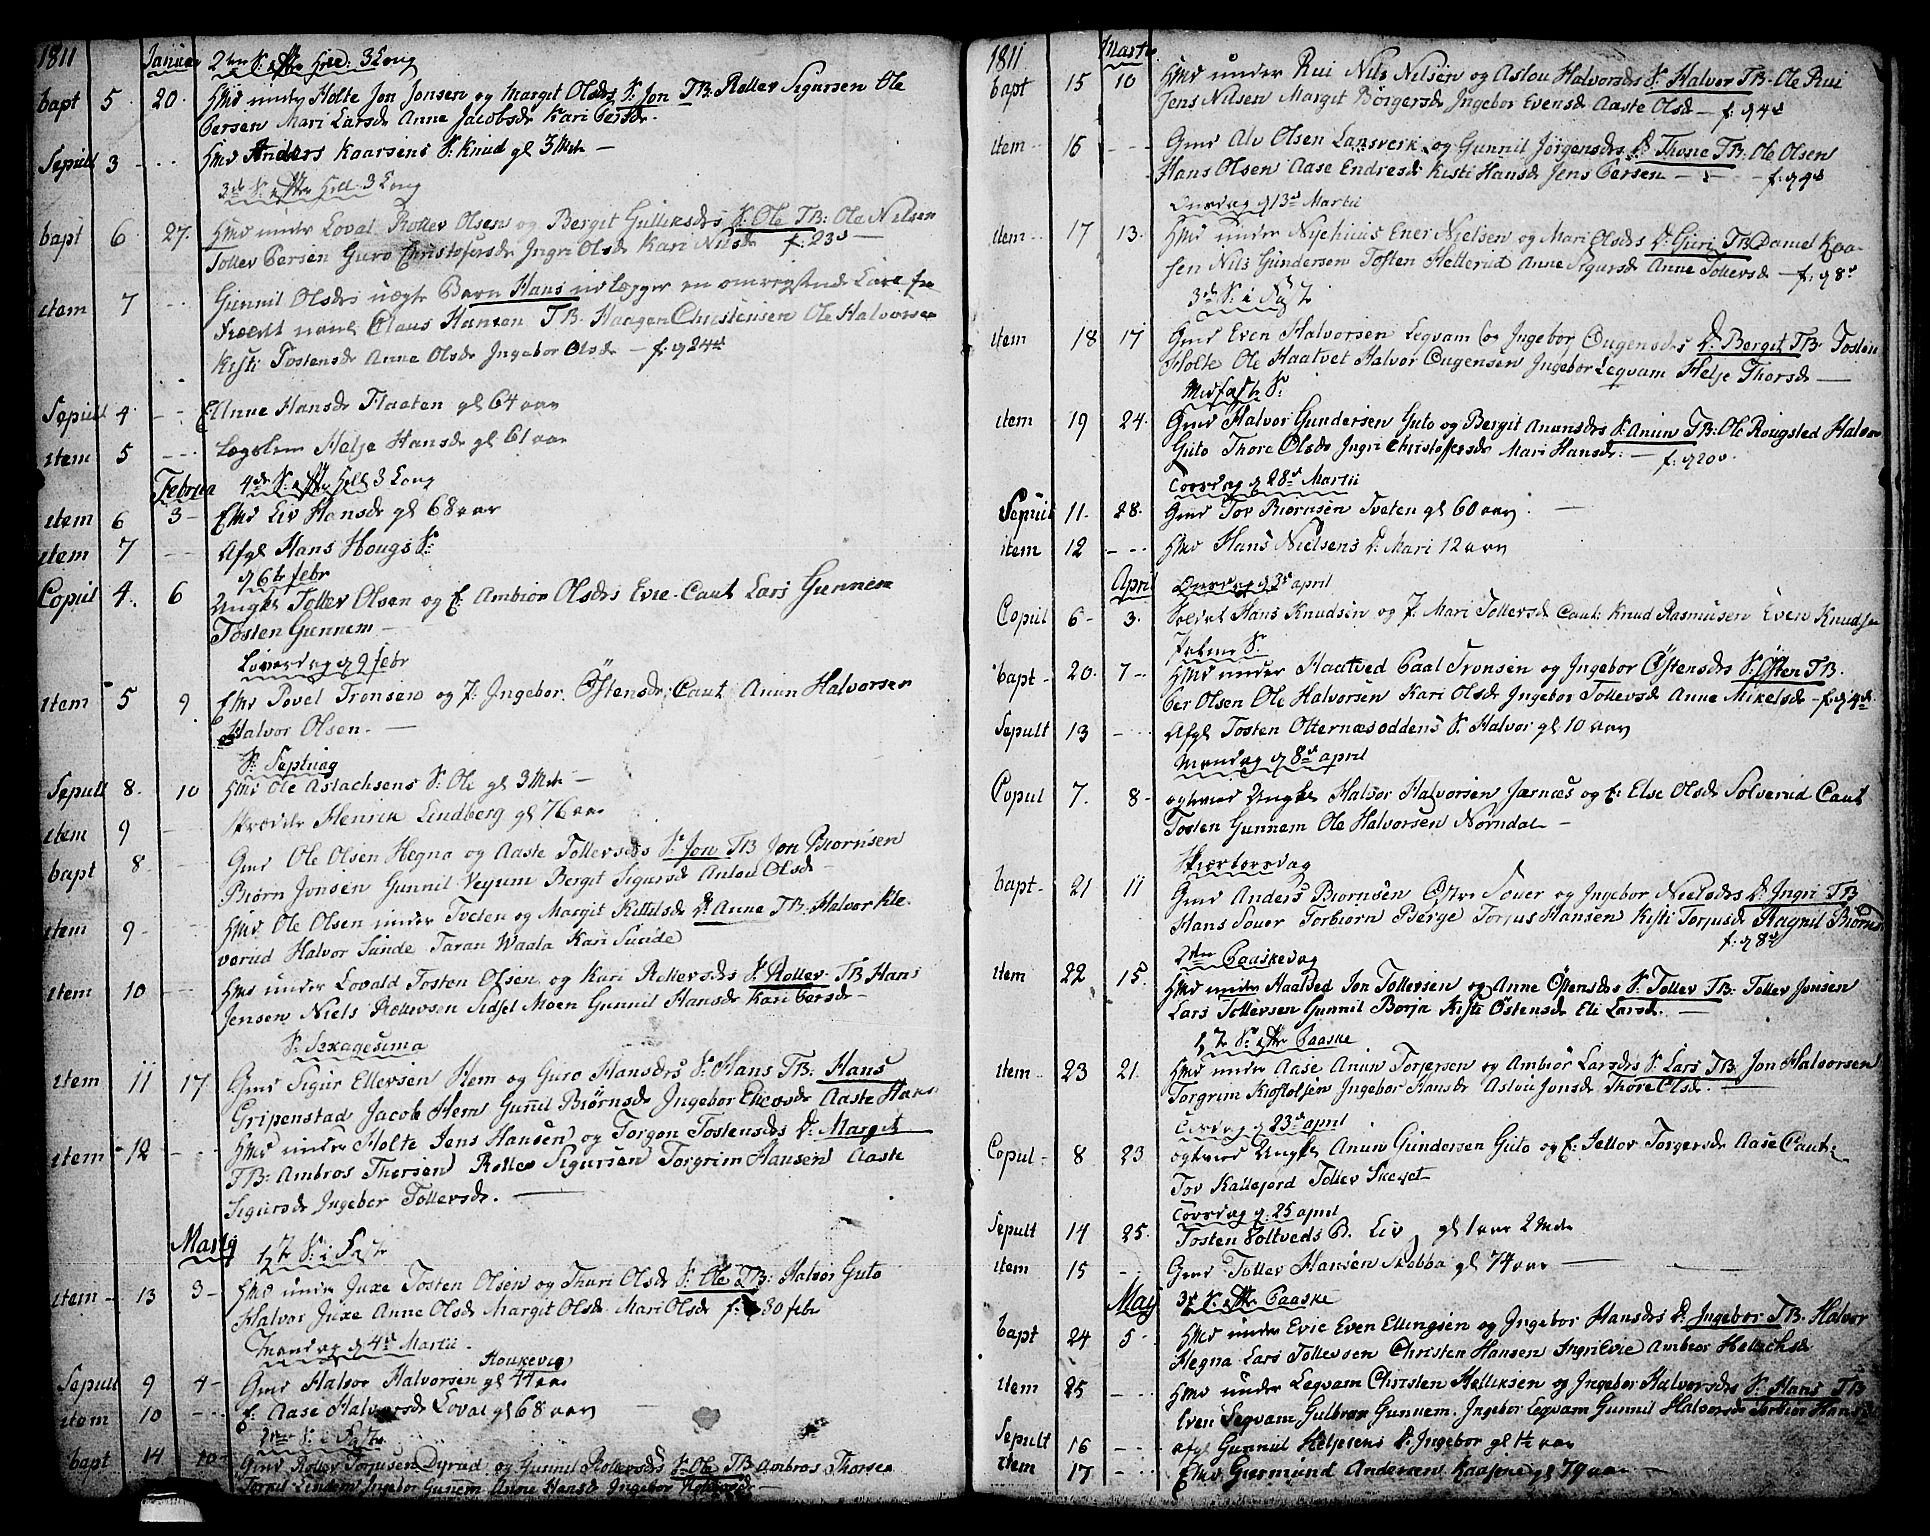 1811 Januar 2den S: efter Hell: 3 Kong
bapt 5 20. Hmd under Holte Jon Jonsen og Margit Olsdr S: Jon TB: Rollev Sigursen Ole
Persen Mari Larsd Anne Jacobsd Kari Persd.
Sepult 3 - Hmd Anders Kaarsens S: Knud gl 3 Mdr —
3de S: efter Hell 3 Kong
bapt 6 27. Hmd under Loval Rollev Olsen og Bergit Gulliksdr S: Ole TB: Ole Nilsen
Tollev Persen Guro Christofersd Ingri Olsd Kari Nilsd f: 23d —
item 7 - Gunnil Olsdrs uægte Barn Hans
navnl Claus Hansen TB. Haagen Christensen Ole Halvorsen
Kisti Tostensd Anne Olsd Ingebor Olsd — f: d 24d
Sepult 4 - E: Anne Hansd Flaaten gl 64 aar
item 5 - Lægslem Helje Hansd gl 61 aar
Februa 4de S: efter Hell 3 Kong
item 6 3 - Liv Hansd gl 68 aar
item 7 - Afgl Hans Hougs S:
d 6te febr
Copul 4. 6 Ungkl Tollev Olsen og E: Ambior Olsdrs Evie. Caut Lars Gunnem
Tosten Gunnem —
Löverdag d 9 febr
item 5 9. Povel Tronsen og P. Ingebor Östensdr; Caut Anun Halvorsen
Halvor Olsen. —
S: Septuag
Sepult 8. 10 Hmd Ole Aslachsens S: Ole gl 3 Mdr —
item 9 - Skræder Henrik Lindberg gl 76 aar
bapt 8. Gmd Ole Olsen Hegna og Aaste Tollevsdrs S: Jon TB Jon Biørnsen
Biørn Jonsen Gunnil Vejum Bergit Sigursd Anlou Olsd —
item 9 - Hmd. Ole Olsen under Tveten og Margit Kittilsd D: Anne TB: Halvor Kle
verud Halvor Sunde Taran Waala Kari Sunde
item 10 - Hmd under Lovald Tosten Olsen og Kari Rollevsdrs S: Rollev TB Hans
Jensen Niels Rollevsen Sidsel Moen Gunnil Hansd Kari Persd —
S: Sexagesima
item 11 17. Gmd Sigur Ellevsen Hem og Guro Hansdrs S: Hans TB: Hans
Gripenstad Jacob Hem Gunnil Biørnsd Ingebor Aaste Hans
item 12 - Hmd under Holte Jens Hansen og Torgon Tostensdrs D: Margit
TB: Ambros Thorsen Rollev Sigursen Torgrim Hansen Aaste
Sigursd Ingebor Tollevsd. —
Martij 1te S: i Faste
item - 13 3 - Hmd under Juxe Tosten Olsen og Thuri Olsd S: Ole TB: Halvor Guto
Halvor Juxe Anne Olsd Margit Olsd Mari Olsd f: febr
Mandag d 4d Martii
Houkevig
Sepult 9 4 - Gmd Halvor Halvorsen gl 44 aar
item 10 - E: Aase Halvorsdr Loval gl 68 aar
2den S: i Faste
bapt 14 10 - Gmd Rollev Torjusen Dyrud og Gunnil Rollevsdrs S: Ole TB Ambros Thorsen
Torgil Lindem Ingebor Gunem Anne Hansd Ingebor
1811 Marti
bapt 15 10 Hmd under Rui Nils Nilsen og Aslou Halvorsdr S: Halvor TB. Ole Rui
Jens Nilsen Margit Börgersd Ingebor Evensd Aaste Olsd — f: d 4d
item 16 - Gmd Alv Olsen Lansverk og Gunnil Jörgensdrs D: Thone TB: Ole Olsen
Hans Olsen Aase Endresd Kisti Hansd Jens Persen — f: d 4d
Onsdag d 13d Martii
item - 17 13. Hmd under Nyehuus Ener Nielsen og Mari Olsdrs D: Guri TB Daniel Kaa-
sen Nils Gundersen Tosten Hetterud Anne Sigursd Anne Tollevsd — f: d 8d
3de S: i Faste
item 18 17 Gmd Even Halvorsen Legvam og Ingebor D: Bergit TB: Tosten
Holte Ole Haatvet Halvor Ingebor Legvam Helje Thorsd —
Midfaste S:
item 19 24. Gmd Halvor Gundersen Guto og Bergit Anunsdrs S: Anun TB: Ole Rougsted Halvor
Guto Thore Olsd Ingri Christoffersd Mari Hansd. — f: d 20d
Torsdag d 28d Martii
Sepult 11. 28. Gmd Tor Biørnsen Tveten gl 60 aar. —
item 12 - Hmd Hans Nielsens D: Mari 12 aar
April Onsdag d 3d april
Copul 6 - 3. Soldat Hans Knudsen og P. Mari Tollevsd Caut: Knud Rasmusen Even Knudsen
Palme S.
bapt - 20. 7 - Hmd under Haatved Paal Tronsen og Ingebor Östensdrs S: Östen TB.
Per Olsen Ole Halvorsen Kari Olsd Ingebor Tollevsd Anne Mikelsd — f: d 4d
Sepult 13 - Afgl Tosten Otternæsoddens S: Halvor gl 10 aar
Mandag d 8d april
Copul 7. 8 - Ungkl Halvor Halvorsen Jærnæs og E: Else Olsd Solverud Caut
Tosten Gunnem Ole Halvorsen Norndal —
Skiærtorsdag
bapt - 21 11 Gmd Anders Biørnsen Östre Souer og Ingebor Nielsdrs D: Ingri TB
Hans Souer Torbiorn Bierge Torjus Hansen Kisti Torjusd Ragnil Biørnsd
f: d 8d
2den Paaskedag
item 22 15. Hmd under Haatved Jon Tollevsen og Anne Östensdrs S: Tollev TB: Tollev Jonsen
Lars Tollevsen Gunnil Borja Kisti Östensd Eli Larsd. —
1te S: efter Paaske
item - 23 21. Hmd under Aase Anun Torjersen og Ambiör Larsdrs S: Lars TB. Jon Halvorsen
Torgrim Kistolsen Ingebor Hansd Aslou Jonsd Thore Olsd. —
Tirsdag d 23d april
Copul - 8 23 Ungkl Anun Gundersen Guto og E: Jellov Torgersd Aase Caut:
Tor Kallefjord Tollev Skejet
Torsdag d. 25 april
Sepult 14 25. Tosten Poltveds B. Liv gl 1 aar 2 Mdr
item 15 - Gmd Tollev Hansen Skobba gl 74 aar —
Maj 3de S: efter Paaske
bapt 24 5 - Hmd under Evie Even Ellingsen og Ingebor Hansdrs D: Ingebor TB. Halvor
Hegna Lars Tollevsen Christen Hansen Ingri Evie Ambiör Hellichsd
item 25 - Hmd under Legvam Christen Helliksen og Ingebor Halvorsdrs S: Hans TB
Even Legvam Gulbran Gunnem. Ingebor Legvam Gunnil Halvorsd Torbior Hansd
Sepult 16 - Afgl Gunnul Heljesens D: Ingebor gl 1½ aar
item 17 - Germund Andersen Kaasene gl 79 aar —